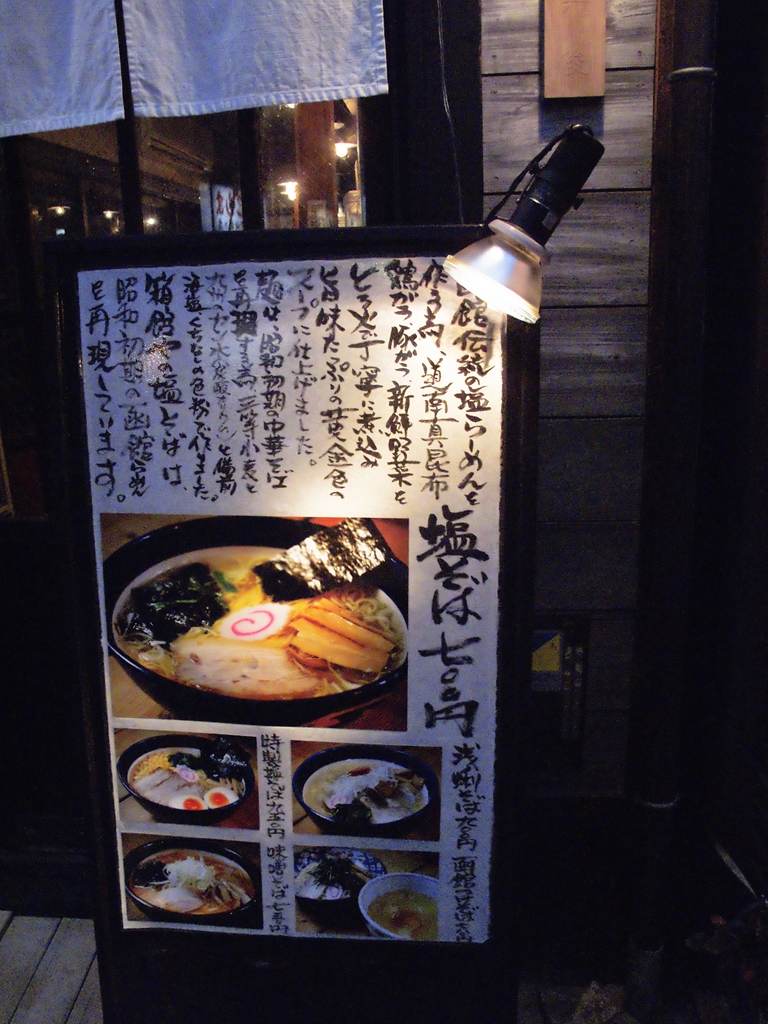 函館伝統の塩らーめんを
作る為、道南真昆布
鶏がら、豚がら、新鮮野菜を
とろ火で丁寧に煮込み
旨味たっぷりの黄金色の
スープに仕上げました。
麺は、昭和初期の中華そば
を再現する為、三等小麦と
海塩、くちなしの色粉で作りました。
箱館やの塩そばは、
昭和初期の函館らーめん
を再現しています。
塩そば 七〇〇円
浅蜊そば 九〇〇円
特製塩そば 九五〇円
味噌そば 七五〇円